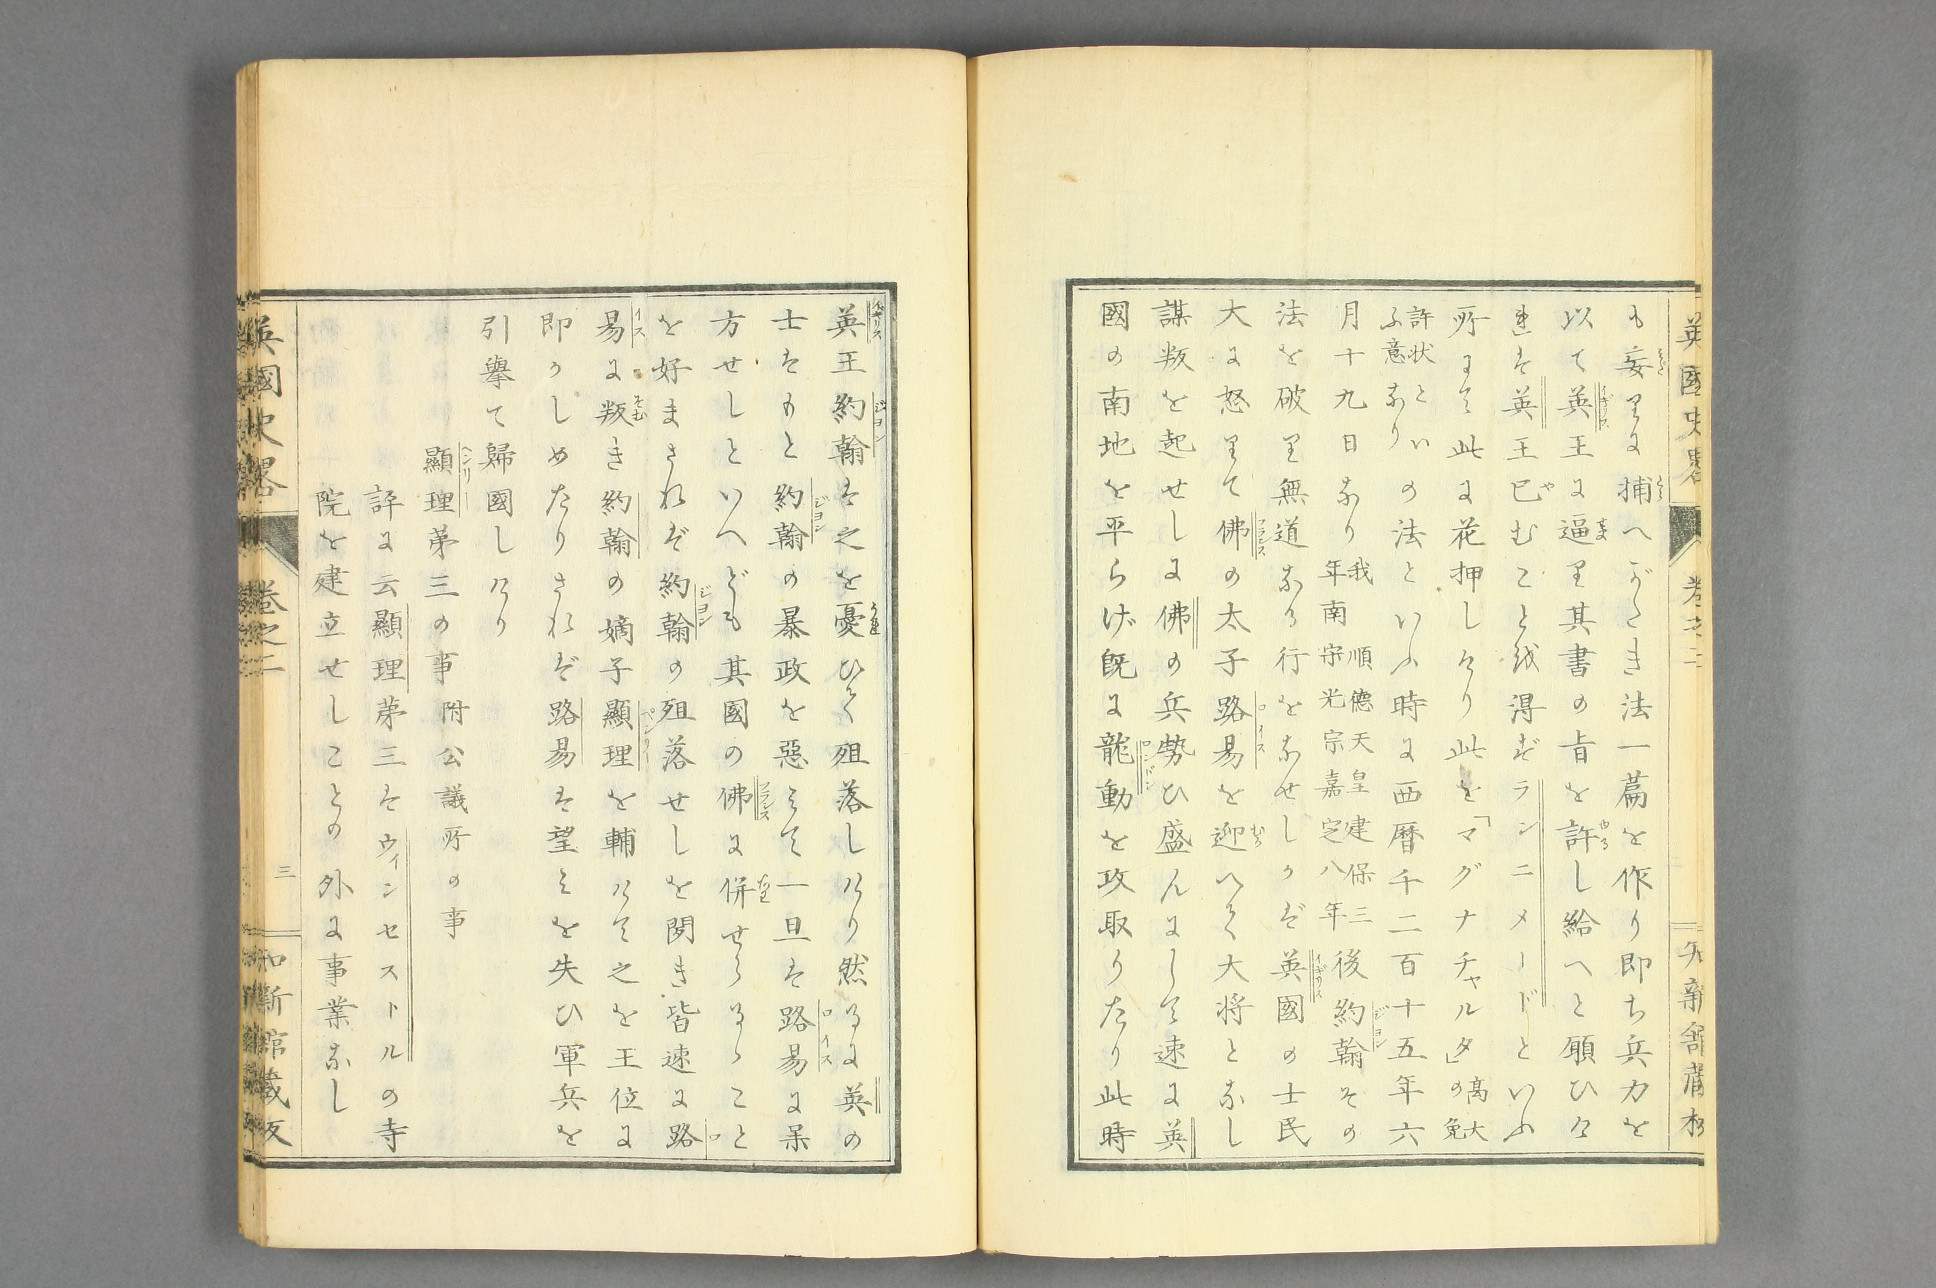 も妄りに捕へがたき法一篇を作り即ち兵力を
以て英王に逼り其書の旨を許し給へと願ひけ
れば英王已むことを得ずランニメードといふ
所にて此に花押しけり此を「マグナチャルタ」の高大免
許状といふ意なりの法といふ時に西暦千二百十五年六
月十九日なり我順德天皇建保三年南宗光宗嘉定八年後約翰その
法を破り無道なる行をなせしかば英國の士民
大に怒りて佛の太子路易を迎へて大将となし
謀叛を起せしに佛の兵勢ひ盛んにして速に英
國の南地を平らげ既に龍動を攻取りたり此時
英王約翰は之を憂ひて殂落しけり然るに英の
士はもと約翰の暴政を惡みて一旦は路易に呆
方せしといへども其國の佛に併せらるゝこと
を好まざれば約翰の殂落せしを聞き皆速に路
易に叛き約翰の嫡子顯理を輔けて之を王位に
即かしめたりされば路易は望みを失ひ軍兵を
引擧て歸國しけり
顯理第三の事 附公議所の事
評に云顯理第三はウィンセストルの寺
院を建立せしことの外に事業なし
英國史畧 卷之二 三 知新館藏板